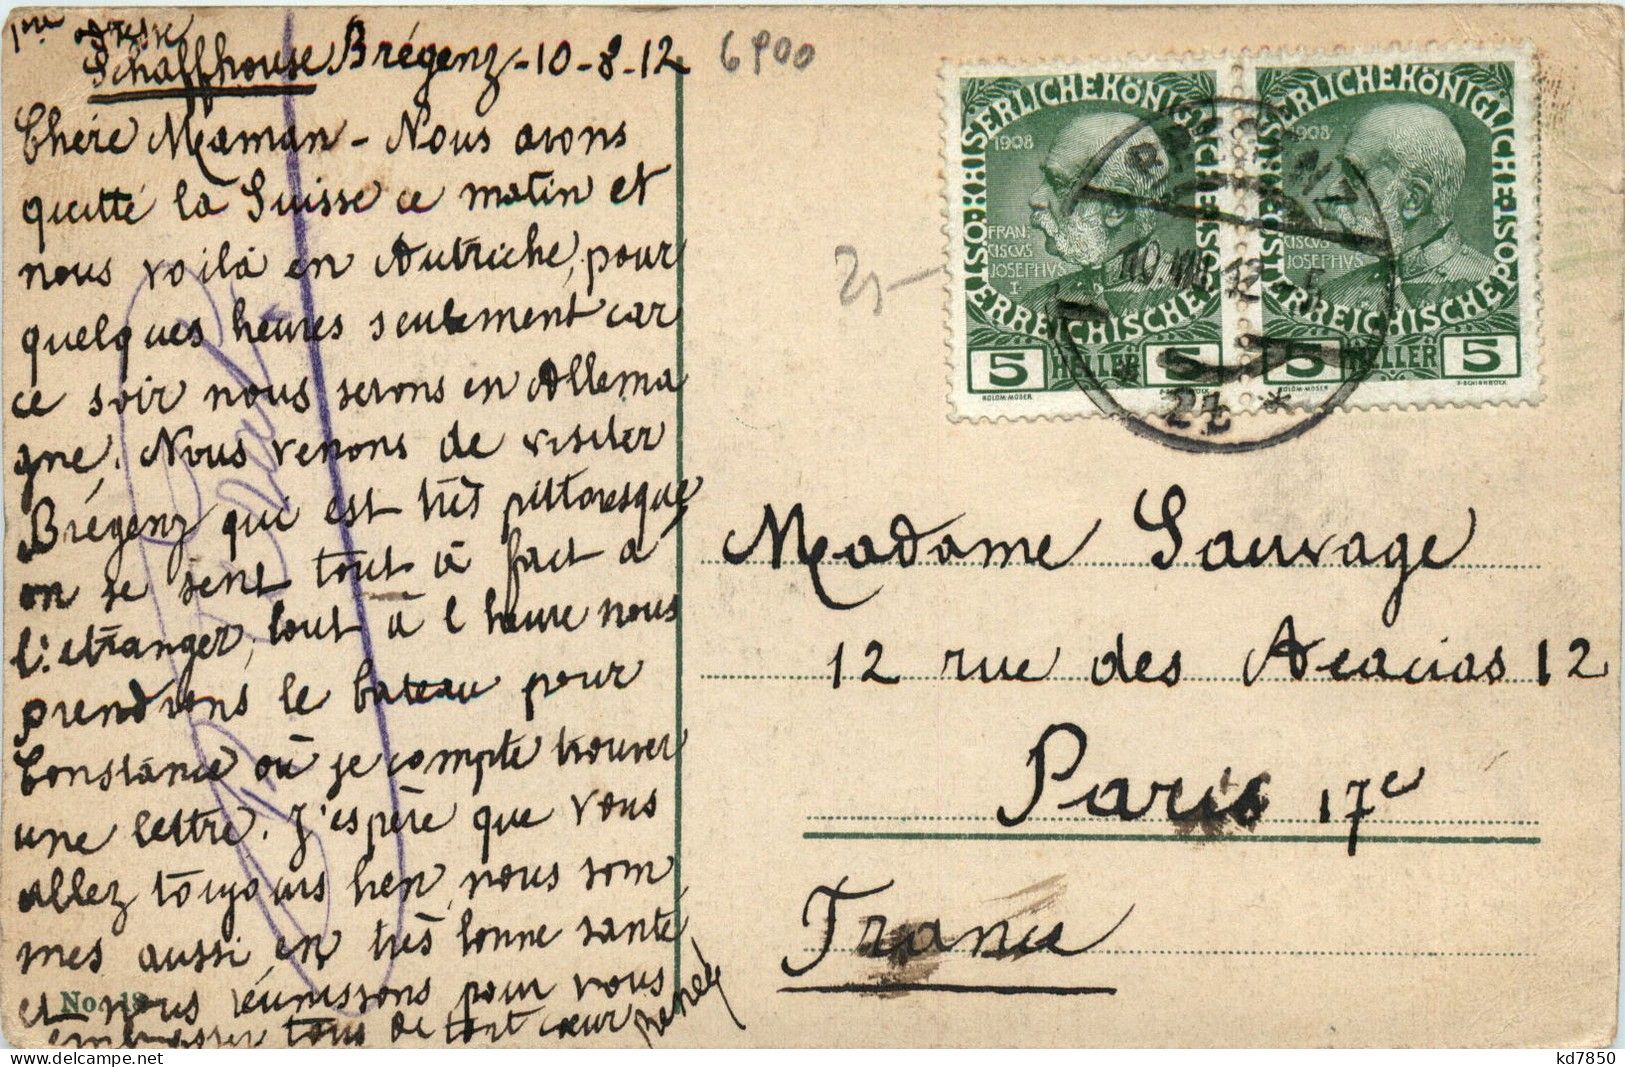 1ère adresse
Schaffhouse Brégenz - 10 - 8 - 12
6900
Chère Maman - Nous avons
quitté la Suisse ce matin et
nous voilà en Autriche, pour
quelques heures seulement car
ce soir nous serons en Allema
gne. Nous venons de visiter
Brégenz qui est très pittoresque
on se sent tout à fait à
l'étranger, tout à l'heure nous
prendrons le bateau pour
Constance où je compte trouver
une lettre. J'espère que vous
allez toujours bien, nous som
mes aussi en très bonne santé
et nous réunissons pour vous
embrasser tous de tout cœur
No. 18
KAISERLICHE KÖNIGLICHE ÖSTERREICHISCHE POST
1908
FRAN
CISCVS
JOSEPHVS
I
5 HELLER 5
KOLOM. MOSER
F. SCHIRNBÖCK
KAISERLICHE KÖNIGLICHE ÖSTERREICHISCHE POST
1908
CISCVS
JOSEPHVS
5 HELLER 5
KOLOM. MOSER
F. SCHIRNBÖCK
BREGENZ 1
10.VIII.12
2b *
Madame Sauvage
12 rue des Acacias 12
Paris 17e
France
kd7850